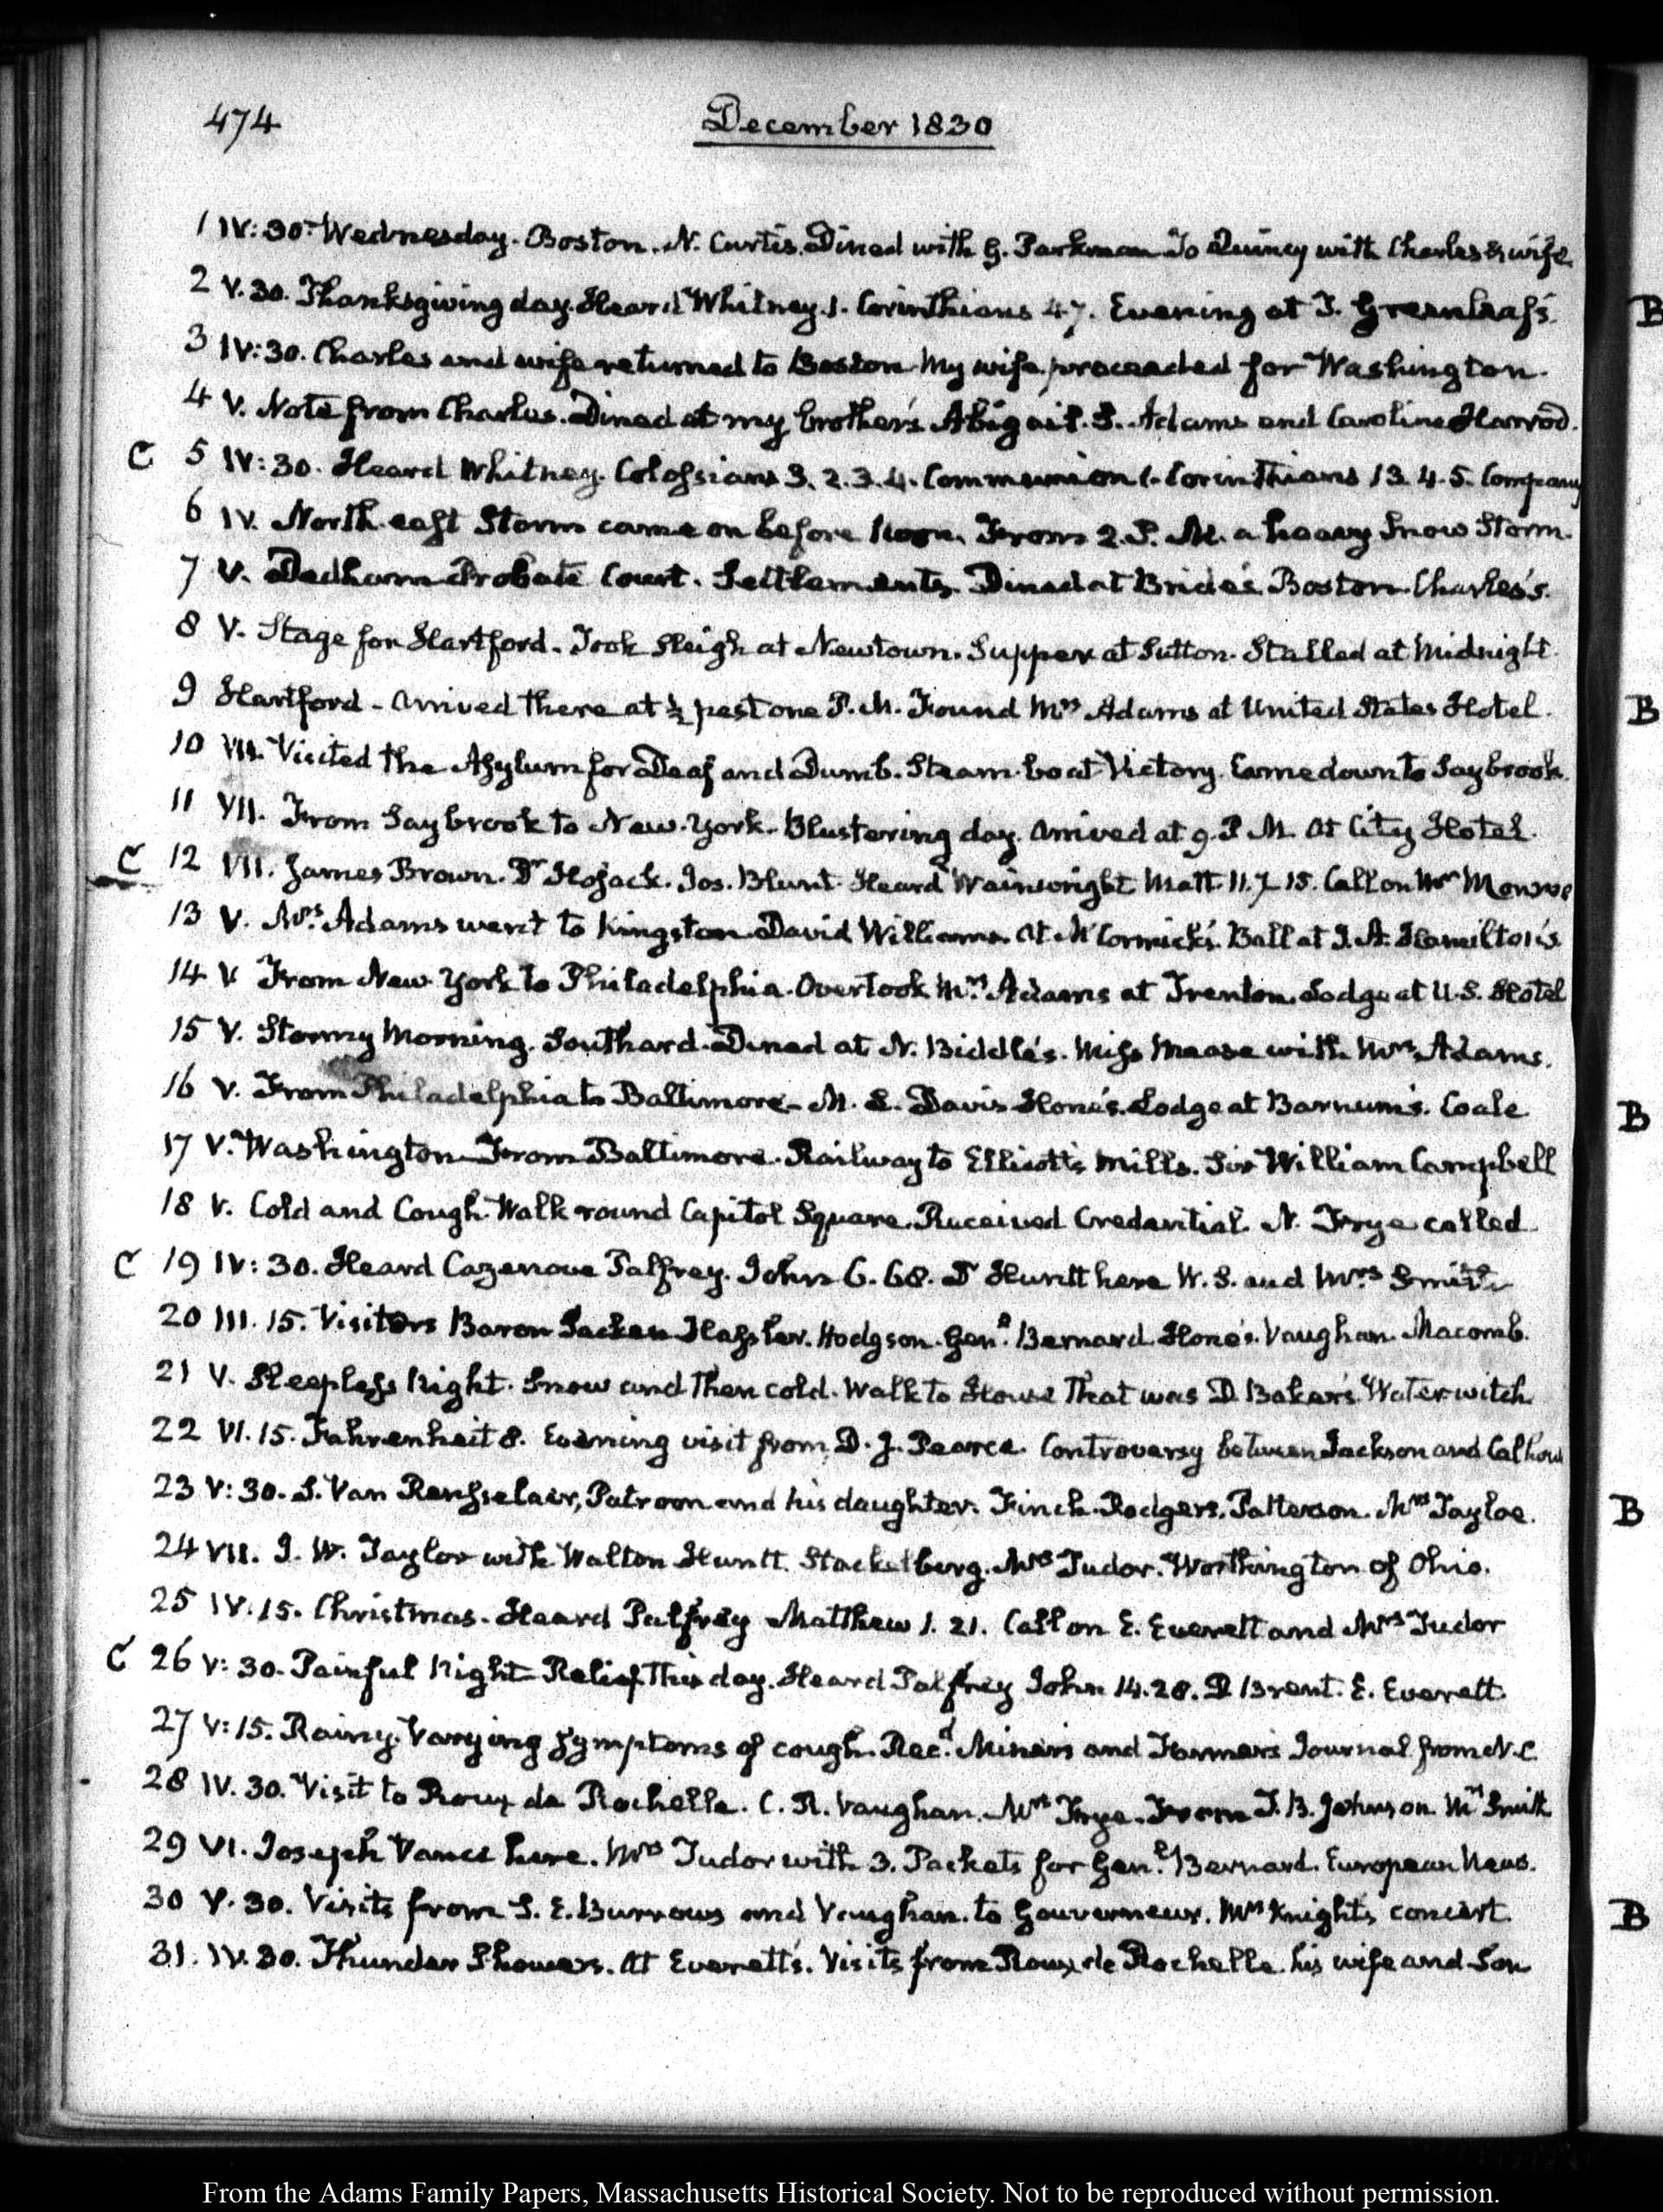 474
December 1830
1 IV:30. Wednesday. Boston. N. Curtis. Dined with G. Parkman To Quincy with Charles & wife
2 V.30. Thanksgiving day. Heard Whitney. 1. Corinthians 4.7. Evening at T. Greenleaf's.
3 IV:30. Charles and wife returned to Boston My wife proceeded for Washington.
4 V. Note from Charles. Dined at my brother's Abigail. S. Adams and Caroline Harrod.
C 5 IV:30. Heard Whitney. Colossians 3. 2.3.4. Communion 1. Corinthians 13. 4.5. Company
6 IV. North east Storm came on before Noon. From 2. P. M. a heavy Snow Storm.
7 V. Dedham Probate Court. Settlements. Dined at Bride's. Boston. Charles's.
8 V. Stage for Hartford. Took Sleigh at Newtown. Supper at Sutton. Stalled at Midnight.
9 Hartford - arrived there at ½ past one P. M. Found Mrs Adams at United States Hotel.
10 VII. Visited the Asylum for Deaf and Dumb. Steam-boat Victory. Came down to Saybrook.
11 VII. From Saybrook to New-York. Blustering day. Arrived at 9. P. M. At City Hotel.
C 12 VII. James Brown. Dr Hosack. Jos. Blunt. Heard Wainwright Matt. 11. 15. Call on Mr Monroe
13 V. Mrs Adams went to Kingston David Williams. At McCormick's. Ball at J. A. Hamilton's
14 V From New-York to Philadelphia. Overtook Mrs Adams at Trenton. Lodge at U.S. Hotel
15 V. Stormy Morning. Southard. Dined at N. Biddle's. Miss Mease with Mrs Adams.
16 V. From Philadelphia to Baltimore. M. L. Davis Hone's. Lodge at Barnum's. Coale
17 V. Washington From Baltimore. Railway to Ellicott's Mills. Sir William Campbell
18 V. Cold and Cough. Walk round Capitol Square. Received Credential. N. Frye called
C 19 IV:30. Heard Cazenove Palfrey. John 6. 68. Dr Huntt here W. S. and Mrs Smith
20 III. 15. Visitors Baron Sacken Hassler. Hodgson. Genl. Bernard. Hone's. Vaughan. Macomb.
21 V. Sleepless Night. Snow and then cold. Walk to House that was D. Baker's. Waterwitch.
22 VI.15. Fahrenheit 8. Evening visit from D. J. Pearce. Controversy between Jackson and Calhoun
23 V:30. S. Van Rensselaer, Patroon and his daughter. Finch. Rodgers. Patterson. Mrs Tayloe.
24 VII. J. W. Taylor with Walton Huntt. Stackelberg. Mrs Tudor. Worthington of Ohio.
25 IV.15. Christmas. Heard Palfrey Matthew 1. 21. Call on E. Everett and Mrs Tudor
C 26 V:30. Painful Night Relief this day. Heard Palfrey John 14.28. D Brent. E. Everett.
27 V:15. Rainy. Varying symptoms of cough. Recd. Miner's and Farmer's Journal from N.C.
28 IV. 30. Visit to Roux de Rochelle. C. R. Vaughan. Mrs Frye. From J. B. Johnson Mrs Smith
29 VI. Joseph Vance here. Mrs Tudor with 3. Packets for Genl. Bernard. European News.
30 V. 30. Visits from S. E. Burrows and Vaughan. to Gouverneur. Mrs Knight's concert.
31. IV.30. Thunder Showers. At Everett's. Visits from Roux de Rochelle. his wife and Son
B
B
B
B
B
From the Adams Family Papers, Massachusetts Historical Society. Not to be reproduced without permission.